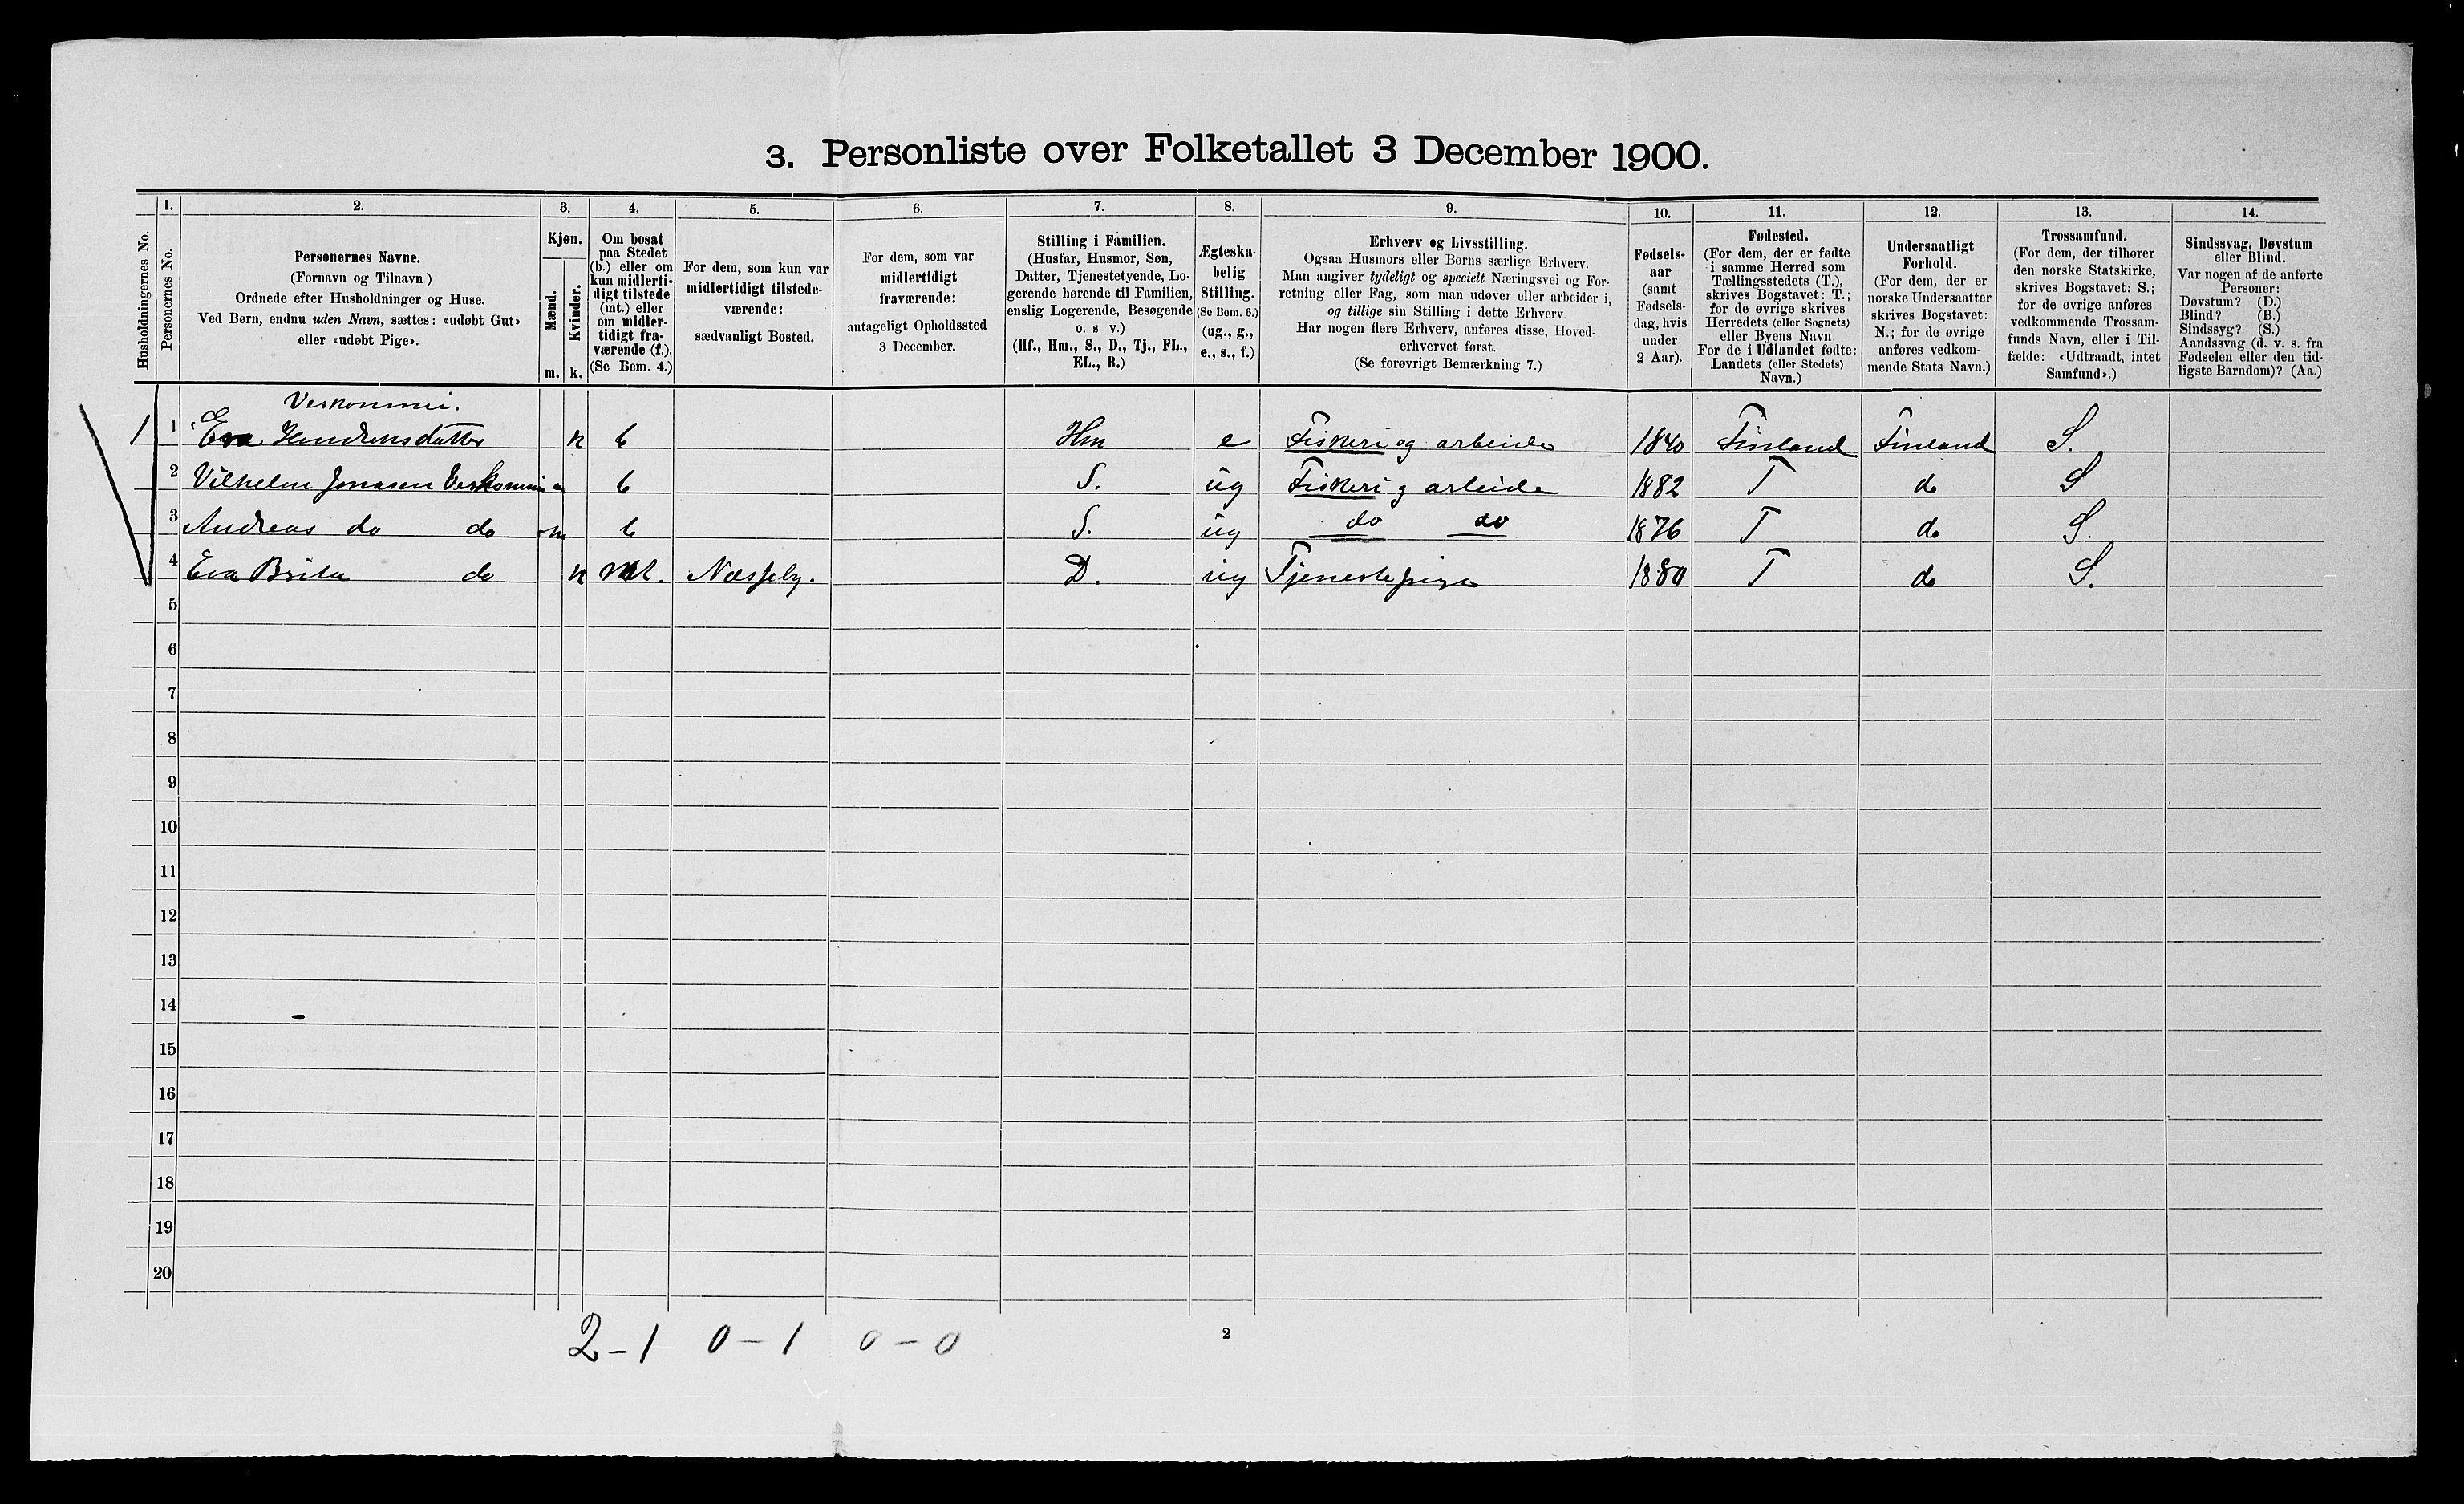 3. Personliste over Folketallet 3 December 1900.
1. 2. 3. 4. 5. 6. 7. 8. 9. 10. 11. 12. 13. 14.
Husholdningernes No.
Personernes No.
Personernes Navne.
(Fornavn og Tilnavn)
Ordnede efter Husholdninger og Huse.
Ved Børn, endnu uden Navn, sættes: «udøbt Gut»
eller «udøbt Pige».
Kjøn.
Mænd.
Kvinder.
m. k.
Om bosat
paa Stedet
(b.) eller om
kun midlerti-
digt tilstede
(mt.) eller
om midler-
tidigt fra-
værende (f.).
(Se Bem. 4.)
For dem, som kun var
midlertidigt tilstede-
værende:
sædvanligt Bosted.
For dem, som var
midlertidigt
fraværende:
antageligt Opholdssted
3 December.
Stilling i Familien.
(Husfar, Husmor, Søn,
Datter, Tjenestetyende, Lo-
gerende hørende til Familien,
enslig Logerende, Besøgende
o. s v.)
(Hf., Hm., S., D., Tj., FL.,
EL., B.)
Ægteska-
belig
Stilling.
(Se Bem. 6.)
(ug., g.,
e., s., f.)
Erhverv og Livsstilling.
Ogsaa Husmors eller Børns særlige Erhverv.
Man angiver tydeligt og specielt Næringsvei og For-
retning eller Fag, som man udøver eller arbeider i,
og tillige sin Stilling i dette Erhverv.
Har nogen flere Erhverv, anføres disse, Hoved-
erhvervet først.
(Se forøvrigt Bemærkning 7.)
Fødsels-
aar
(samt
Fødsels-
dag, hvis
under
2 Aar).
Fødested.
(For dem, der er fødte
i samme Herred som
Tællingsstedets (T.),
skrives Bogstavet: T.;
for de øvrige skrives
Herredets (eller Sognets)
eller Byens Navn.
For de i Udlandet fødte:
Landets (eller Stedets)
Navn.)
Undersaatligt
Forhold.
(For dem, der er
norske Undersaatter
skrives Bogstavet:
N.; for de øvrige
anføres vedkom-
mende Stats Navn.)
Trossamfund.
(For dem, der tilhører
den norske Statskirke,
skrives Bogstavet: S.;
for de øvrige anføres
vedkommende Trossam-
funds Navn, eller i Til-
fælde: «Udtraadt, intet
Samfund».)
Sindssvag, Døvstum
eller Blind.
Var nogen af de anførte
Personer:
Døvstum? (D.)
Blind? (B.)
Sindssyg? (S.)
Aandssvag (d. v. s. fra
Fødselen eller den tid-
ligste Barndom)? (Aa.)
Veskommi.
1 1 Eva Hendrensdatter k b Hm e Fiskeri og arbeide 1840 Finland Finland S.
2 Vilhelm Jonasen Veskommi m b S. ug Fiskeri g arbeide 1882 T do S
3 Andreas do do m b S. ug do do 1876 T do S.
4 Eva Brita do k mt. Næsseby. D. ug Tjenestepige 1880 T do S.
5
6
7
8
9
10
11
12
13
14
15
16
17
18
19
20
2-1 0-1 0-0
2